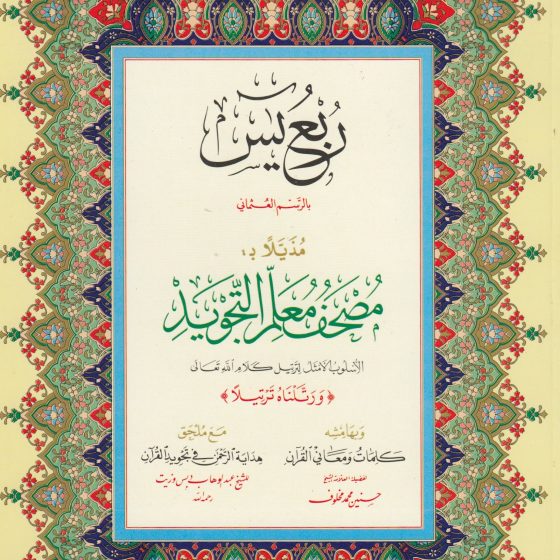 رُبْعُ يسٓ
بالرسم العثماني
مُذَيَّلًا بـ:
مُصْحَفُ مُعَلِّمِ التَّجْوِيدِ
الأسلوب الأمثل لترتيل كلام الله تعالى
﴿وَرَتَّلْنَاهُ تَرْتِيلًا﴾
وبهامشه
كلمات ومعاني القرآن
لفضيلة العلامة الشيخ
حسنين محمد مخلوف
مع ملحق
هداية الرحمن في تجويد القرآن
للشيخ عبد الوهاب دبس وزيت
رحمه الله